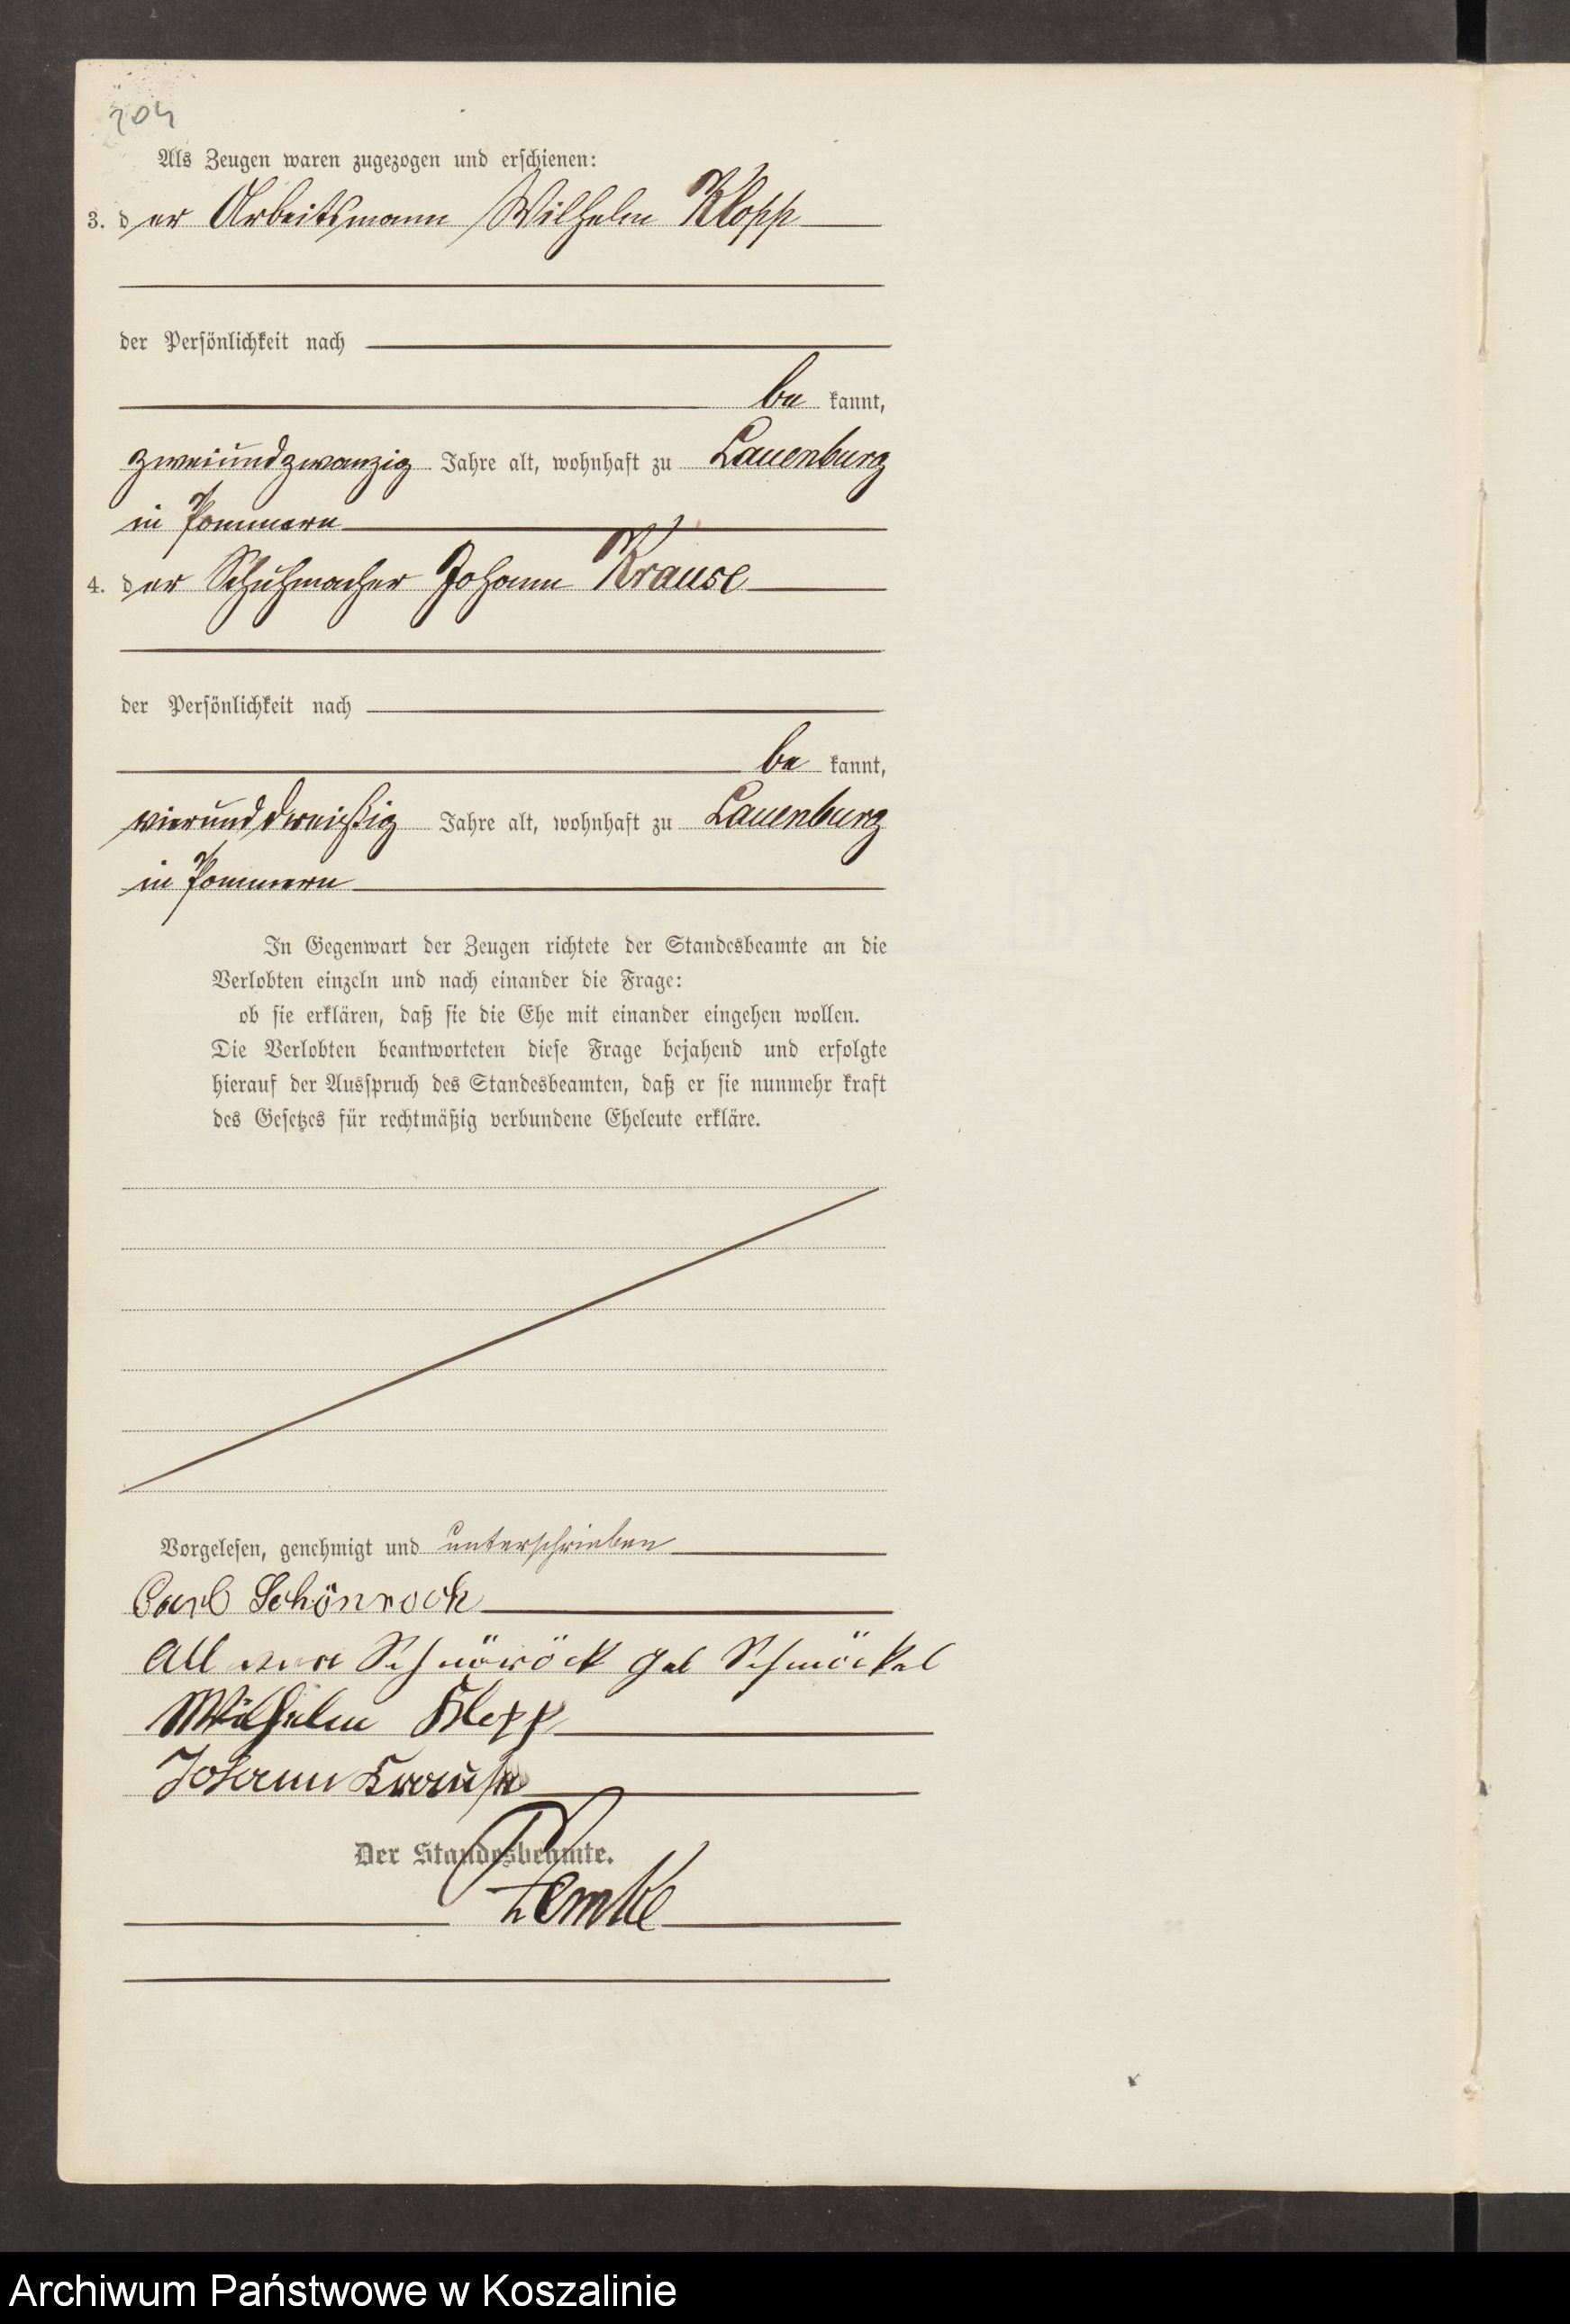 204
Als Zeugen waren zugezogen und erschienen:
3. der Arbeitsmann Wilhelm Klopp
der Persönlichkeit nach
be kannt,
zweiundzwanzig Jahre alt, wohnhaft zu Lauenburg
in Pommern
4. der Schuhmacher Johann Krause
der Persönlichkeit nach
be kannt,
vierunddreißig Jahre alt, wohnhaft zu Lauenburg
in Pommern
In Gegenwart der Zeugen richtete der Standesbeamte an die
Verlobten einzeln und nach einander die Frage:
ob sie erklären, daß sie die Ehe mit einander eingehen wollen.
Die Verlobten beantworteten diese Frage bejahend und erfolgte
hierauf der Ausspruch des Standesbeamten, daß er sie nunmehr kraft
des Gesetzes für rechtmäßig verbundene Eheleute erkläre.
Vorgelesen, genehmigt und unterschrieben
Carl Schönrock
Schönröck geb Schmöckel
Wilhelm Klopp
Johann Krause
Der Standesbeamte.
Archiwum Państwowe w Koszalinie